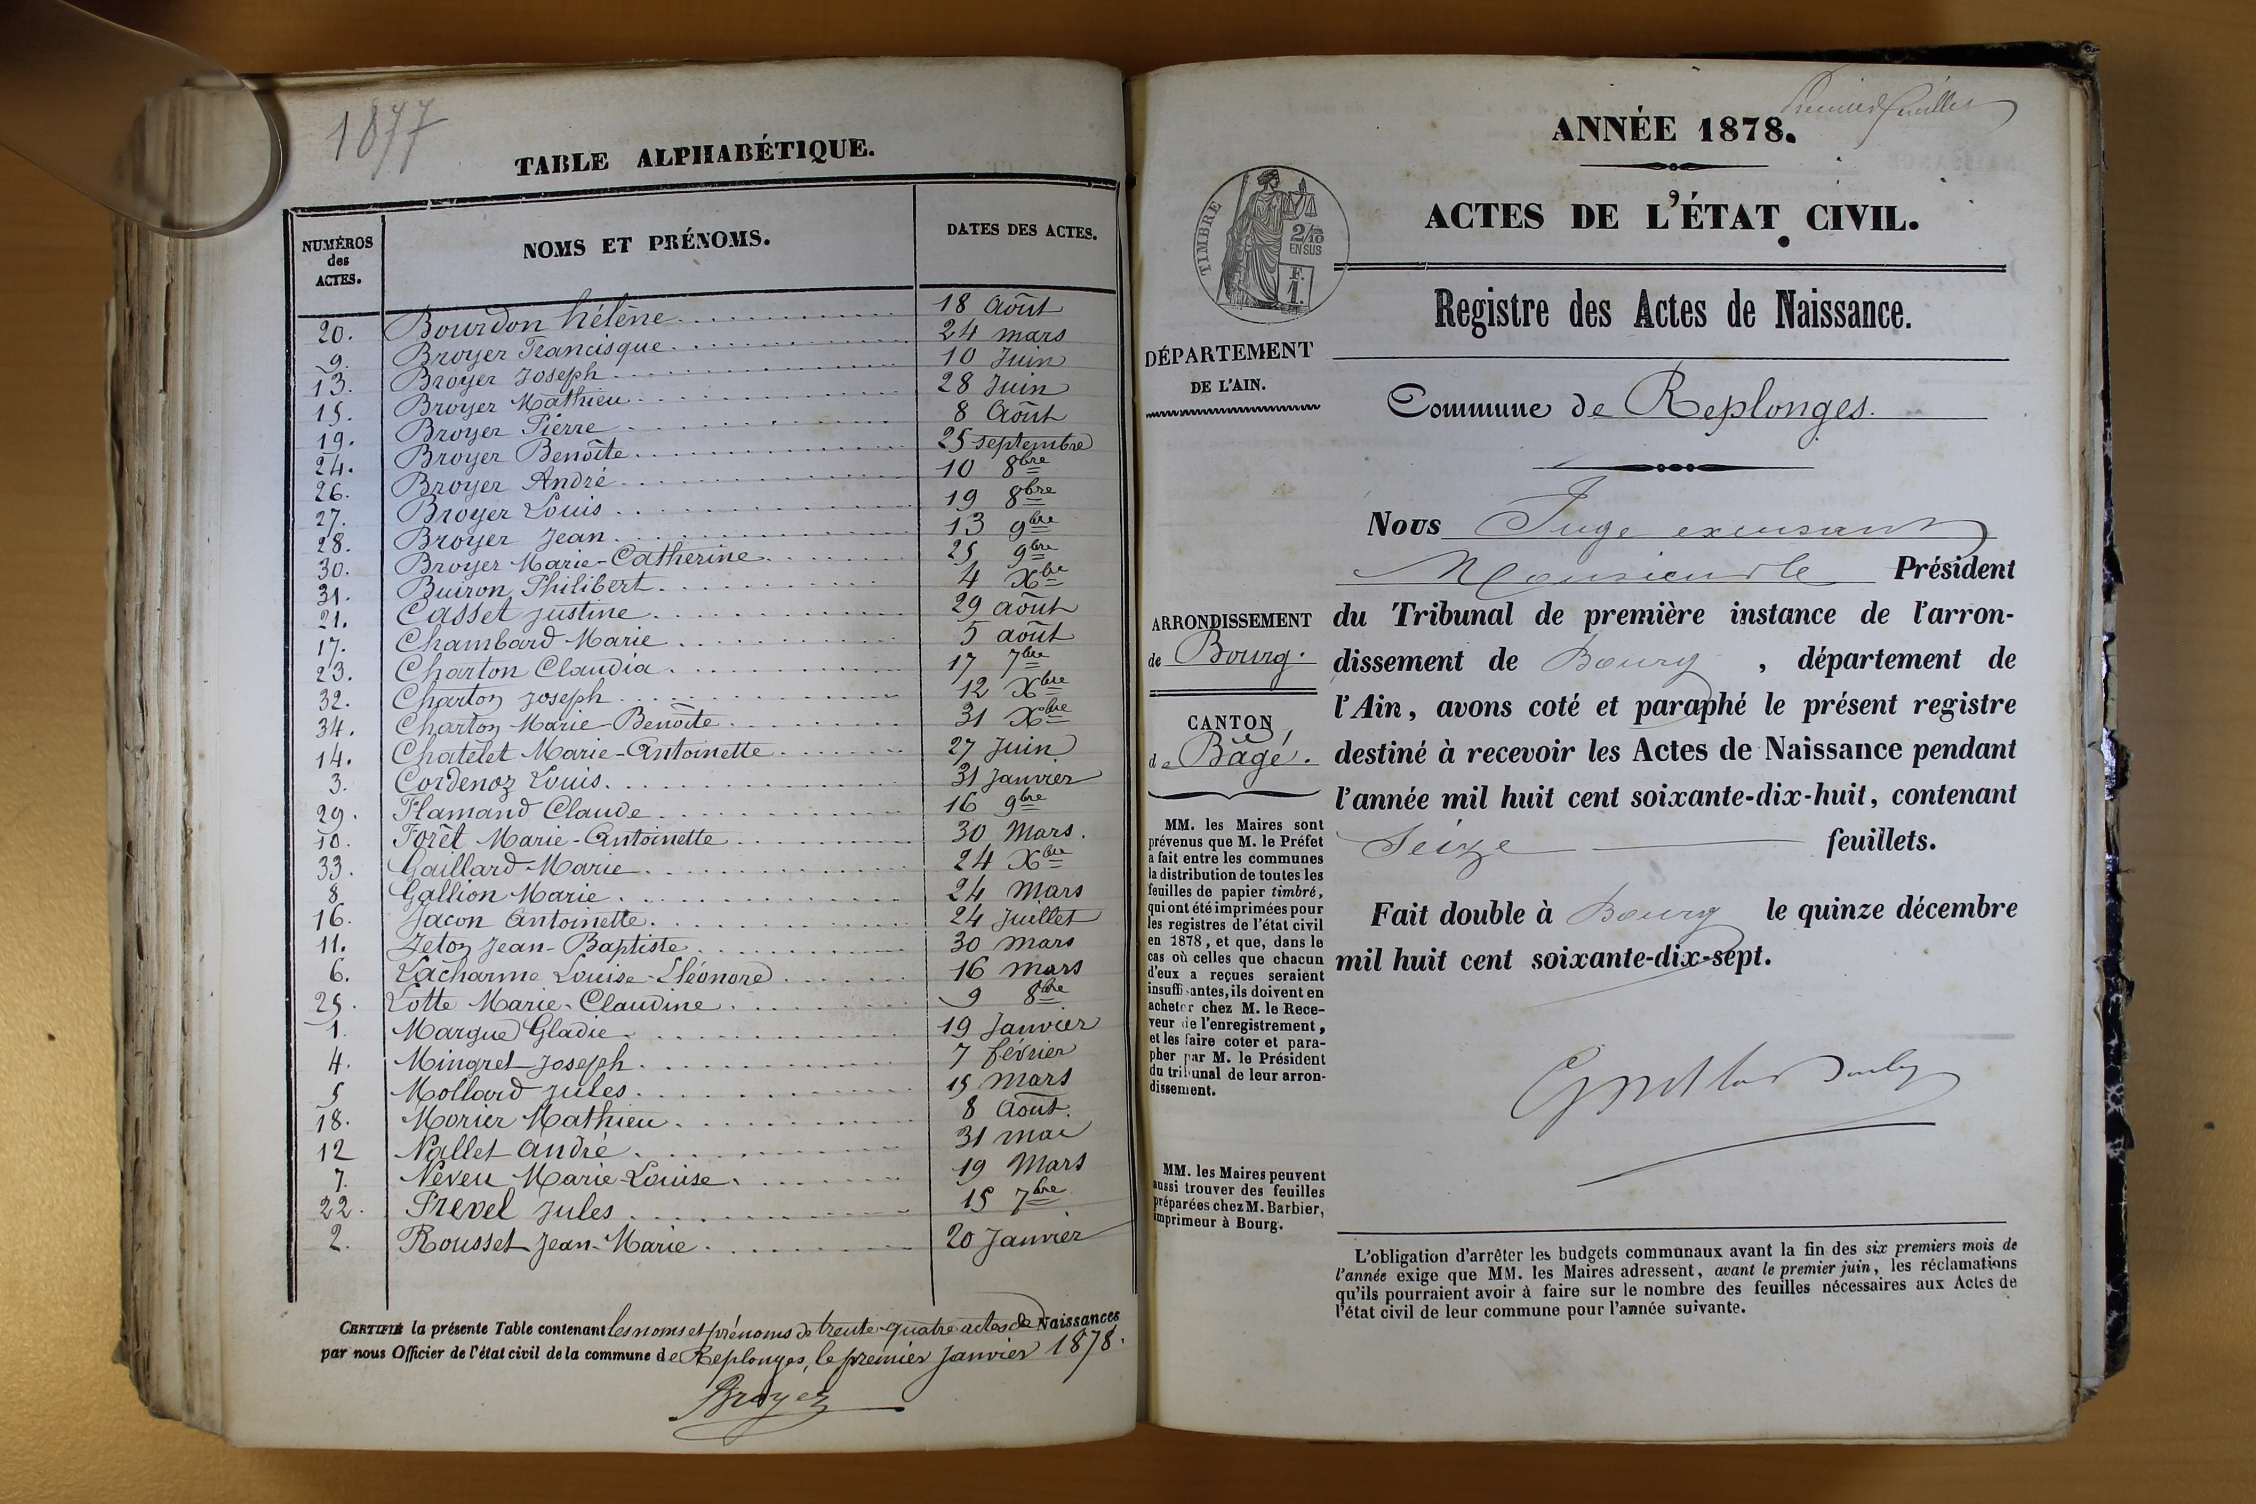 1877
TABLE ALPHABÉTIQUE.
NUMÉROS des ACTES. NOMS ET PRÉNOMS. DATES DES ACTES.
20. Bourdon hélène 18 Août
9. Broyer Francisque 24 mars
13. Broyer Joseph 10 Juin
15. Broyer Mathieu 28 Juin
19. Broyer Pierre 8 Août
24. Broyer Benoîte 25 septembre
26. Broyer André 10 8bre
27. Broyer Louis 19 8bre
28. Broyer Jean 13 9bre
30. Broyer Marie-Catherine 25 9bre
31. Buiron Philibert 4 Xbre
21. Casset Justine 29 août
17. Chambard Marie 5 août
23. Charton Claudia 17 7bre
32. Charton Joseph 12 Xbre
34. Charton Marie-Benoîte 31 Xbre
14. Chatelet Marie-Antoinette 27 Juin
3. Cordenoz Louis 31 Janvier
29. Flamand Claude 16 9bre
10. Forêt Marie-Antoinette 30 Mars.
33. Gaillard Marie 24 Xbre
8 Gallion Marie 24 Mars
16. Jacon Antoinette 24 Juillet
11. Jeton Jean-Baptiste 30 mars
6. Lacharme Louise-Eléonore 16 mars
25. Lotte Marie-Claudine 9 8bre
1. Margue Gladie 19 Janvier
4. Mingret Joseph 7 février
5 Mollard Jules 15 mars
18. Morier Mathieu 8 Août.
12 Nallet André 31 mai
7. Neveu Marie-Louise 19 Mars
22. Prevel Jules 15 7bre
2. Rousset Jean-Marie 20 Janvier
CERTIFIÉ la présente Table contenant les noms et prénoms de trente-quatre actes de Naissances
par nous Officier de l'état civil de la commune de Replonges, le premier Janvier 1878.
Broyer
Premier feuillet
ANNÉE 1878.
ACTES DE L'ÉTAT CIVIL.
TIMBRE
2/10
EN SUS
F.
1.
Registre des Actes de Naissance.
DÉPARTEMENT
DE L'AIN.
Commune de Replonges.
Nous Juge excusant
Monsieur le Président
du Tribunal de première instance de l'arron-
dissement de Bourg, département de
l'Ain, avons coté et paraphé le présent registre
destiné à recevoir les Actes de Naissance pendant
l'année mil huit cent soixante-dix-huit, contenant
Seize feuillets.
Fait double à Bourg le quinze décembre
mil huit cent soixante-dix-sept.
ARRONDISSEMENT
de Bourg.
CANTON
de Bâgé.
MM. les Maires sont
prévenus que M. le Préfet
a fait entre les communes
la distribution de toutes les
feuilles de papier timbré,
qui ont été imprimées pour
les registres de l'état civil
en 1878, et que, dans le
cas où celles que chacun
d'eux a reçues seraient
insuffisantes, ils doivent en
acheter chez M. le Rece-
veur de l'enregistrement,
et les faire coter et para-
pher par M. le Président
du tribunal de leur arron-
dissement.
MM. les Maires peuvent
aussi trouver des feuilles
préparées chez M. Barbier,
imprimeur à Bourg.
L'obligation d'arrêter les budgets communaux avant la fin des six premiers mois de
l'année exige que MM. les Maires adressent, avant le premier juin, les réclamations
qu'ils pourraient avoir à faire sur le nombre des feuilles nécessaires aux Actes de
l'état civil de leur commune pour l'année suivante.